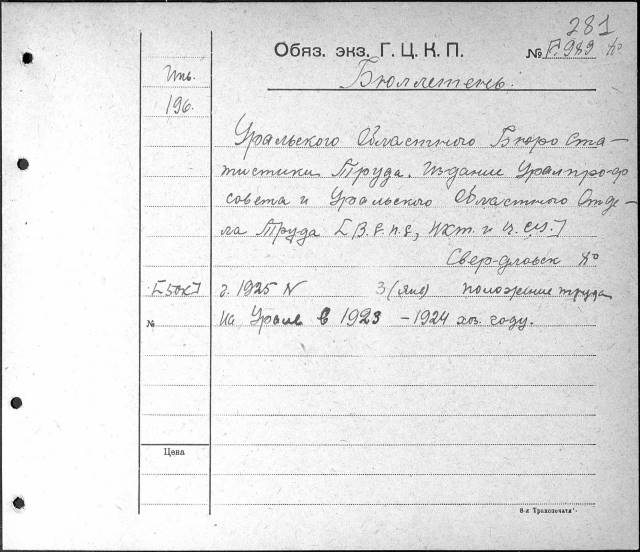 281
Обяз. экз. Г. Ц. К. П. № Г. 989
Инв.
Бюллетень.
196.
Уральского Областного Бюро Ста-
тистики Труда. Издание Уралпроф
совета и Уральского Областного Отде-
ла Труда
Свердловск
[50к] г. 1925 N 3 (Янв) положение труда
№ на Урале в 1923 - 1924 хоз. году.
Цена
8-я Транспечати